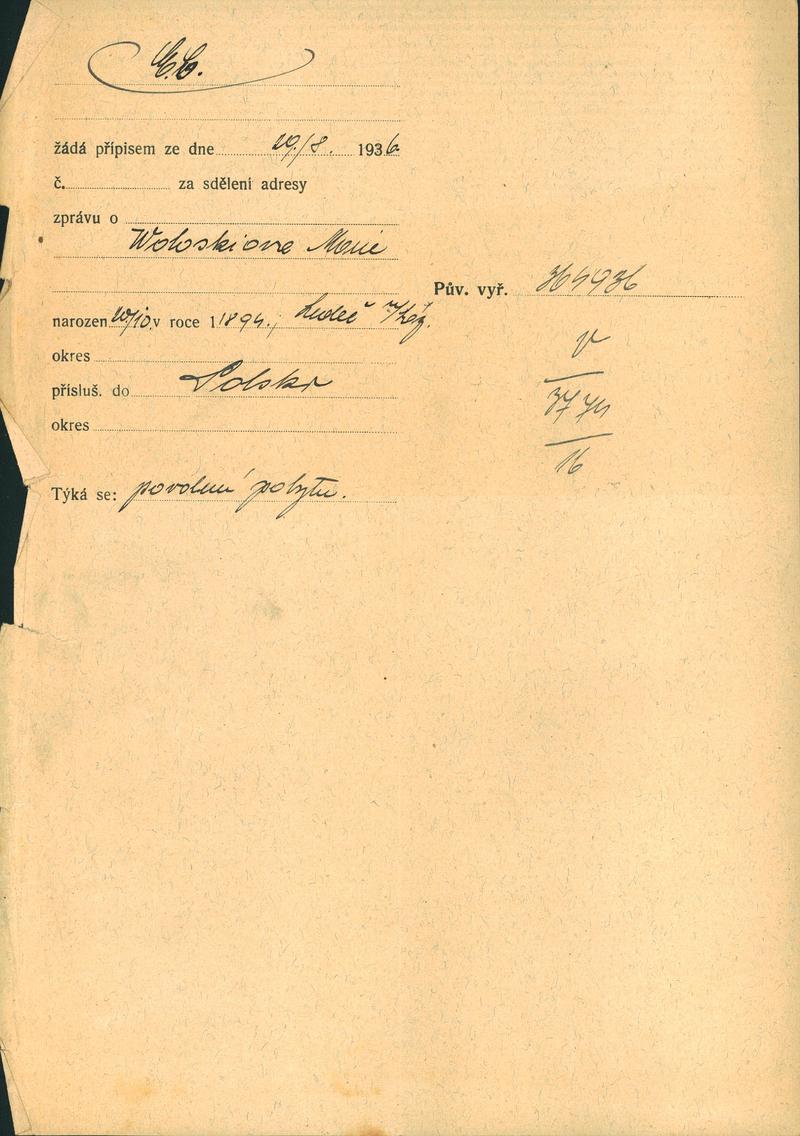 žádá přípisem ze dne 29./8. 1936
č. za sdělení adresy
zprávu o
Woloskiova Marie
Pův. vyř. 364936
narozen 20/10. v roce 1 1894., Ledeč
okres
V
přísluš. do Polska
3774
okres
16
Týká se: povolení pobytu.